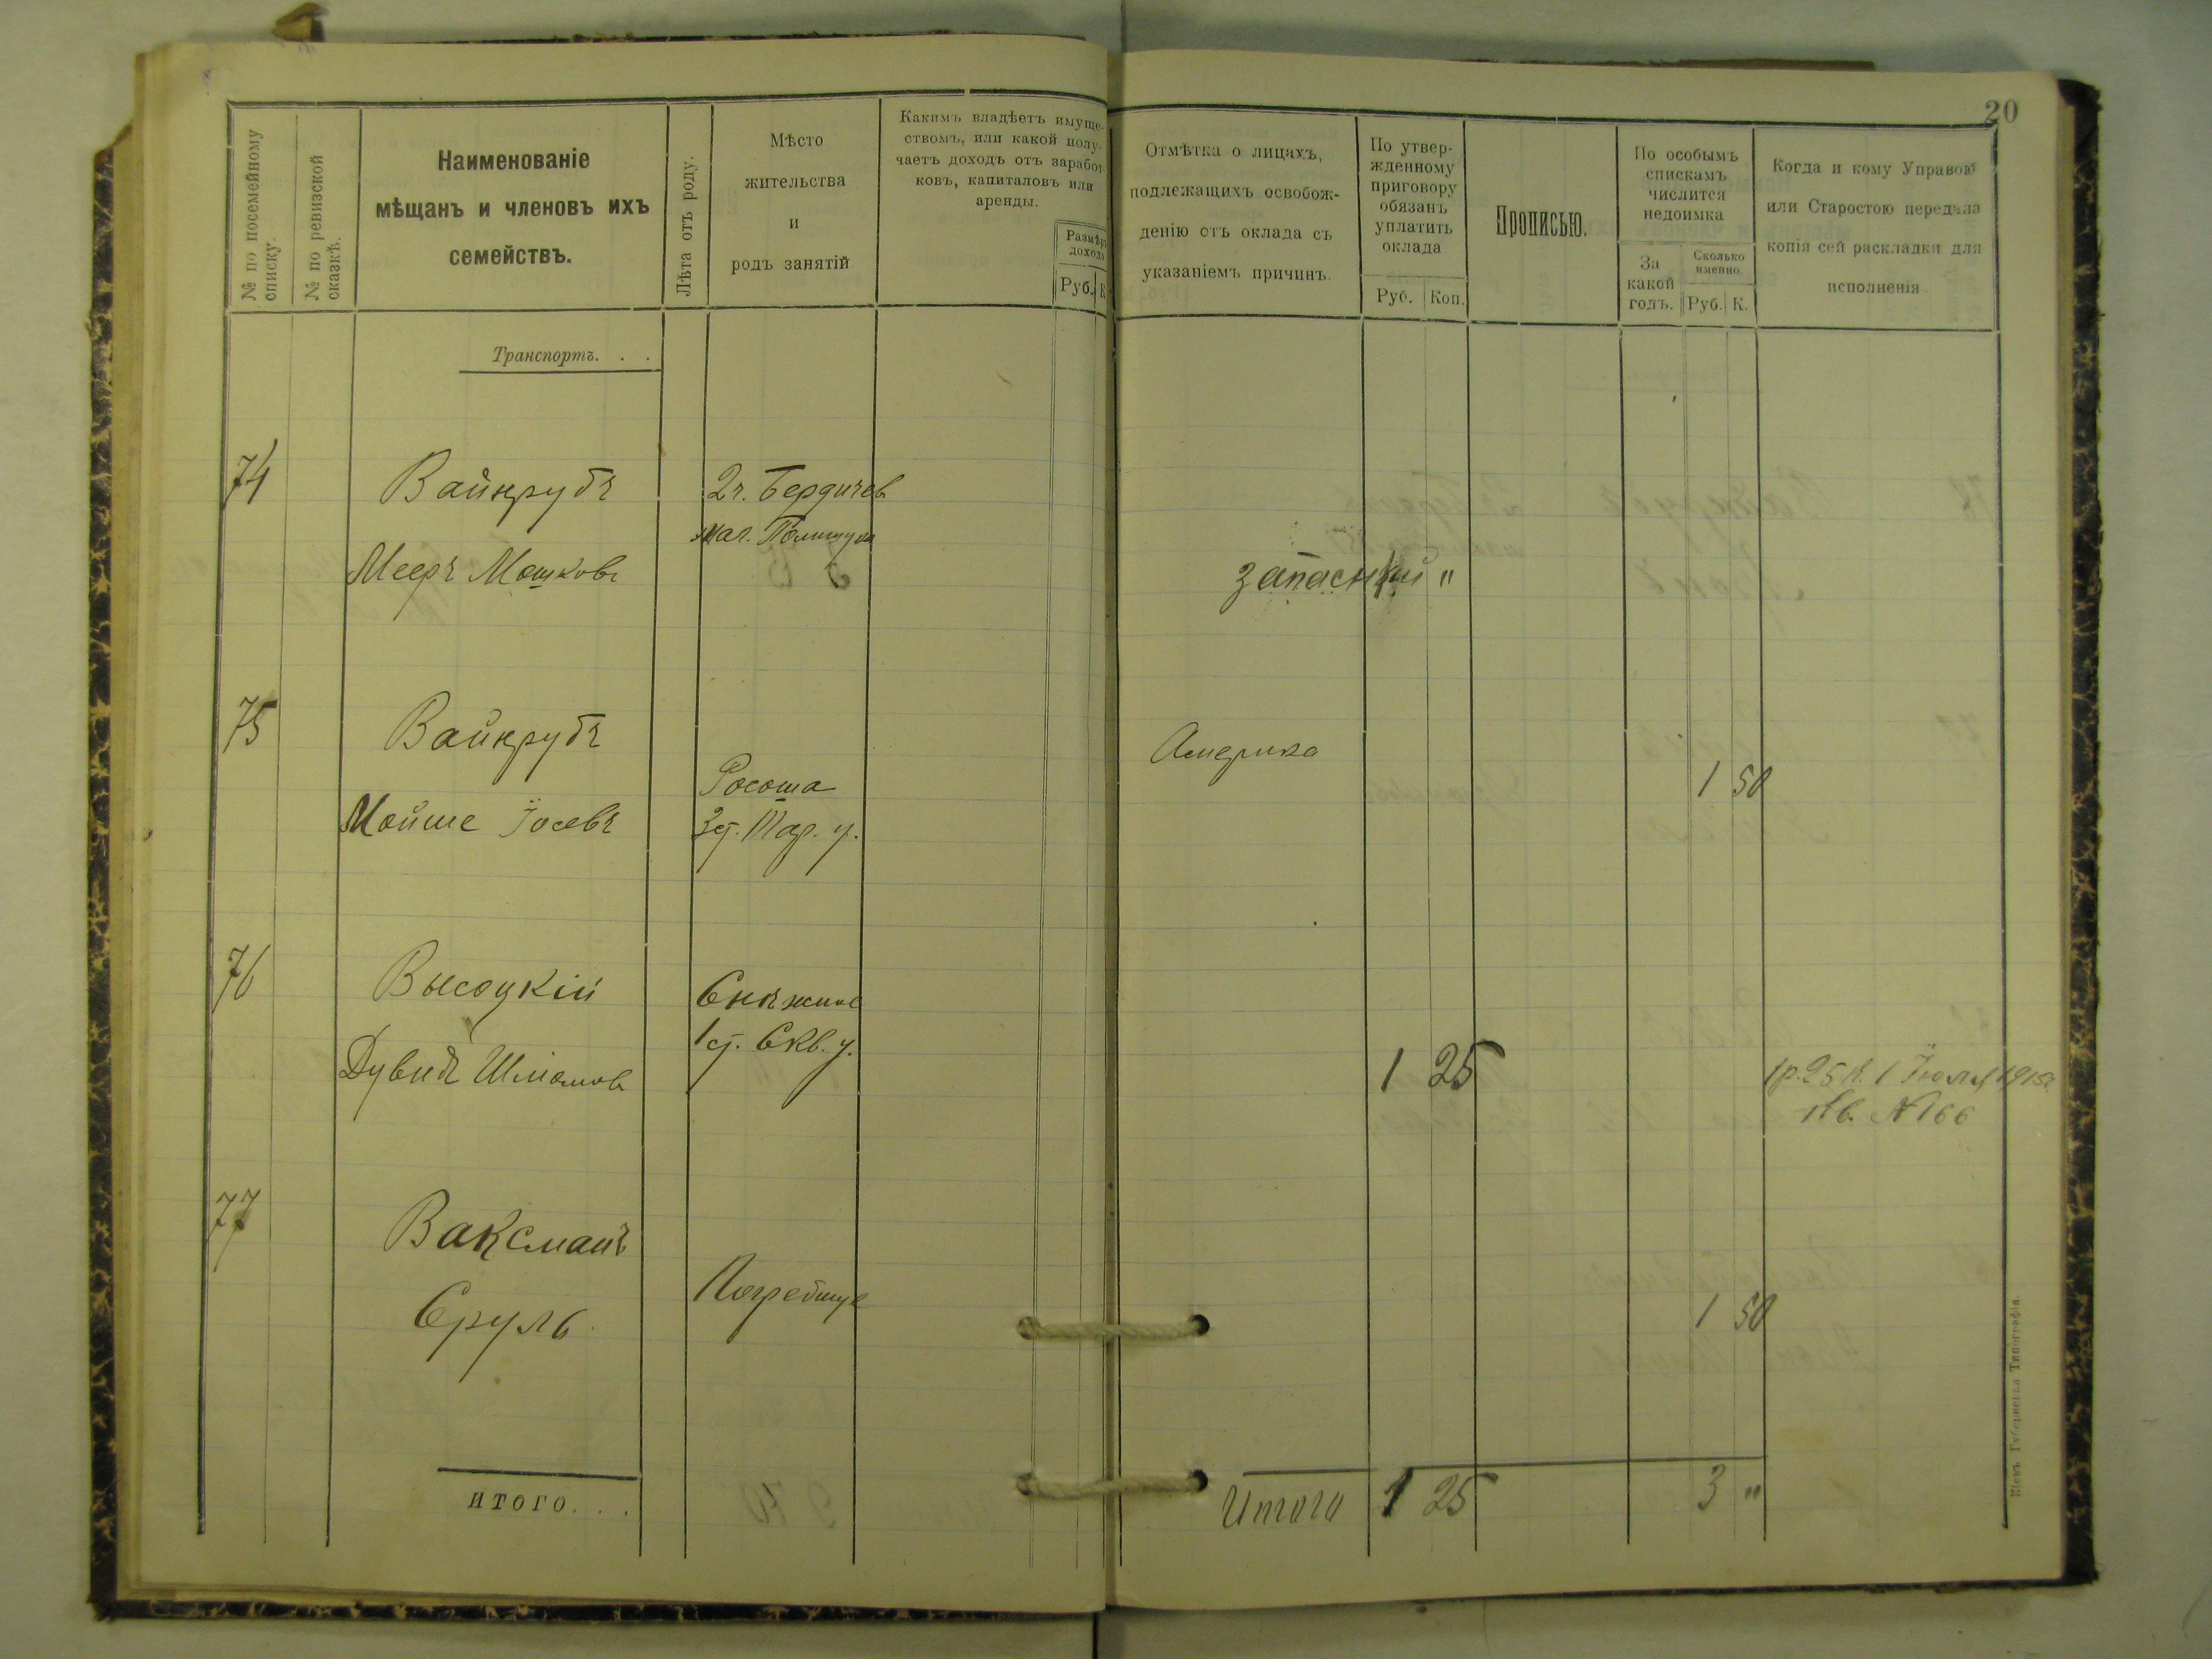 20
№ по посемейному
списку.
№ по ревизской
сказкѣ.
Наименованіе
мѣщанъ и членовъ ихъ
семействъ.
Лѣта отъ роду.
Мѣсто
жительства
и
родъ занятій
Какимъ владѣетъ имуще-
ствомъ, или какой полу-
чаетъ доходъ отъ заработ-
ковъ, капиталовъ или
аренды.
Размѣръ
дохода
Руб. К
Отмѣтка о лицахъ,
подлежащихъ освобож-
денію отъ оклада съ
указаніемъ причинъ.
По утвер-
жденному
приговору
обязанъ
уплатить
оклада
Руб. Коп.
Прописью.
По особымъ
спискамъ
числится
недоимка
За
какой
годъ.
Сколько
именно.
Руб. К.
Когда и кому Управою
или Старостою передана
копія сей раскладки для
исполненія
Транспортъ. . .
74 Вайнрубъ 2ч. Бердичев
маг.
Мееръ Мошковъ запасный "
75 Вайнрубъ Америка
Росоша 1 50
Мойше Іосевъ 3 ст. Тар. у.
76 Высоцкій Снѣжное
1 ст. Скв. у.
Дувидъ Шліомов 1 25 1 р. 25 к. 1 Іюля 1915г.
Кв. № 166
77 Ваксманъ
Погребище
Сруль 1 50
ИТОГО. . .
Итого 1 25 3 "
Кіевъ Губернская Типографія.